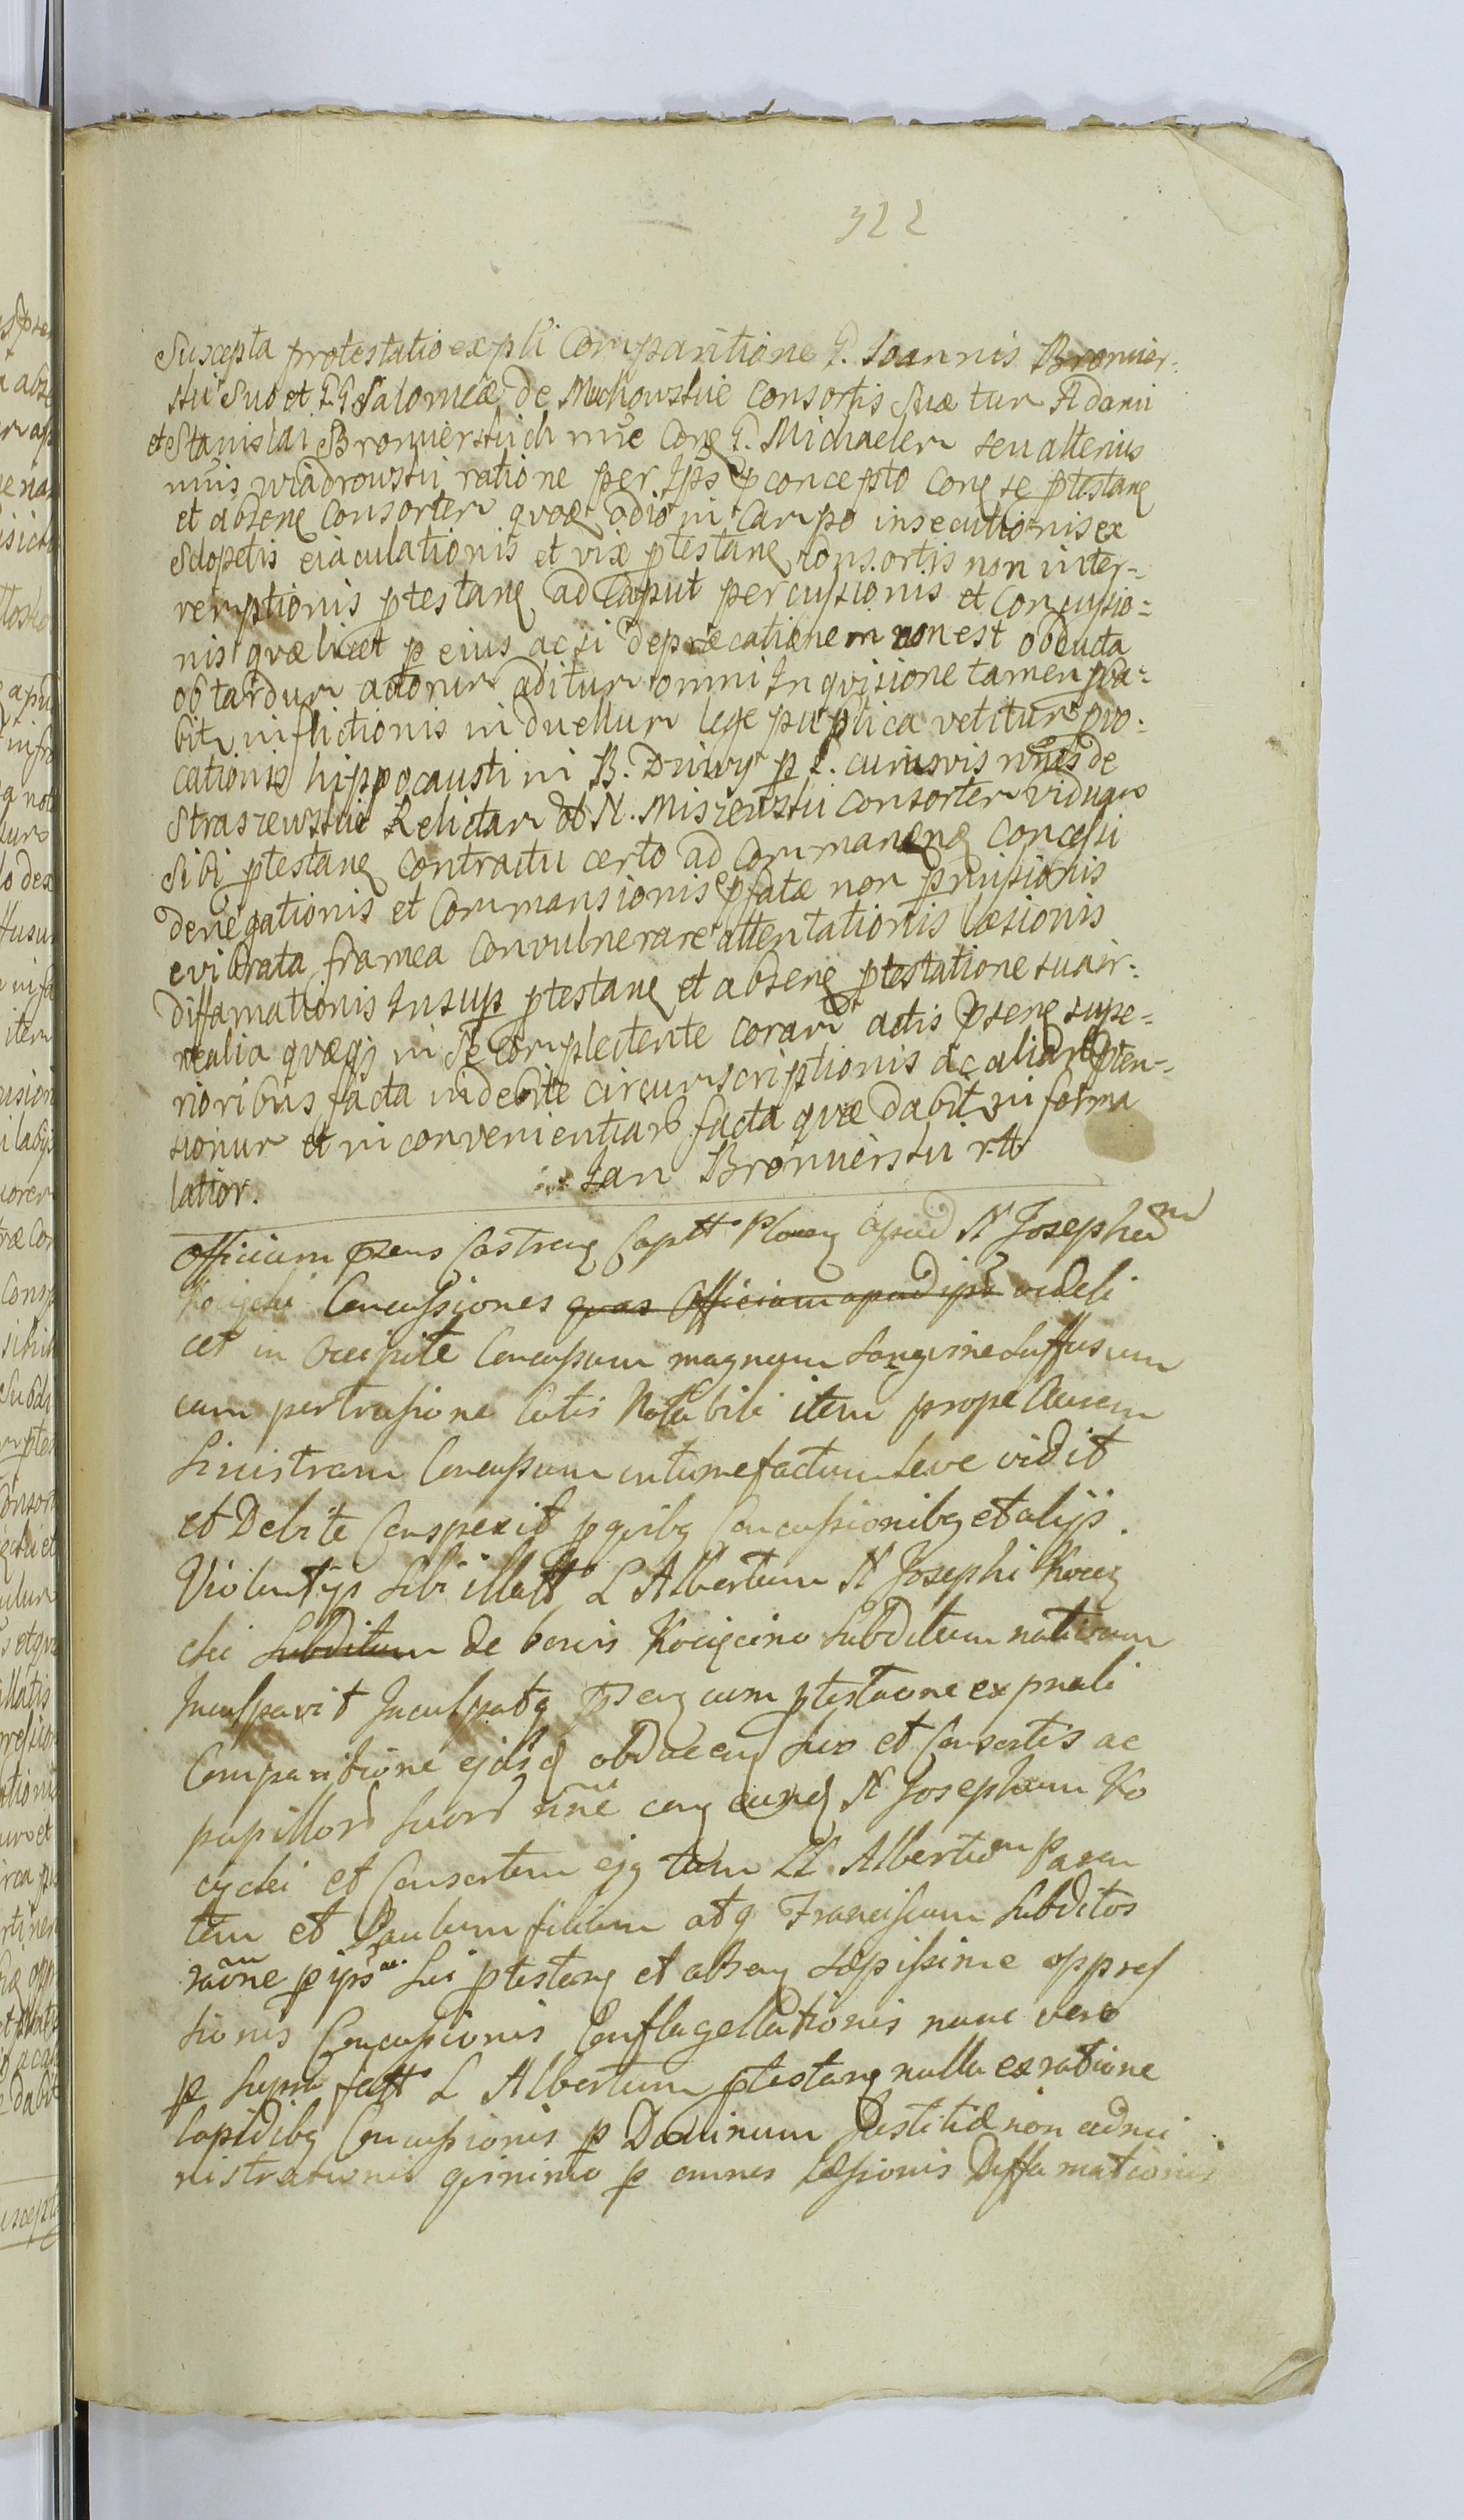 322
Suscepta protestatio ex pli Comparitione G. Joannis Bromier-
ski Suo et GG Salomeæ de Mochowskie consortis Suæ tum Adami
et Stanislai Bromierskich nne Cong G. Michaelem seu alterius
nnis wiadrowski ratione per Ips concepto Cong se ptestang
et abseng Consortem quvæ odio ni Campo insecutionis ex
Sclopetis eiaculationis et vix ptestang consortis non inter-
remptionis ptestang ad Caput percussionis et Concussio=
nis quæ licet p eius acsi depræcationem non est obducta
ob tardum actorum aditum omni Inqvisione tamen pba=
bit inflictionis ni duellum lege puplica vetitum pro=
cationis hippocausti ni B. Driwy p L. cuiusvis nnis de
Straszewskie Relictam ol N. Miszewski consortem viduam
Sibi ptestang contractu certo ad Commaneng concessi
denegationis et Commansionis pfatæ non pmisionis
evibrata framea Convulnerare attentationis læsionis
diffamationis Insup ptestang et abseng ptestatione sua ir=
realia quæqj ni Se Complectente coram actis pseng supe=
rioribus facta indebite circumscriptionis ac aliam pten=
sionum et ni convenientiam facta quæ dabit ni forma
latior. Jan Bromierski r. W
Officium psens Castreng Captt Plong apud N Josephum
Kocięcki Concussiones quas Officium apud ips videli
cet in Occipite Concussum magnum Sangvine Suffusum
cum pertrusione Cutis Notabili item prope Aurem
Sinistram Concussum intumefactum Leve vidit
et Debite Conspexit p quibg Concussionibg et alijs.
Violentijs Sibi illatt L Albertum N Josephi Kocię
cki Subditum de bonis Kocięcino Subditum nativum
Inculpavit Inculpatq pseng cum ptestaone ex pnali
Comparitione ejdsd obduceng suo et Consortis ac
pupillor Suor nne cong eund N Josephum Ko
cięcki et Consortem ejg tum LL Albertum Paren
tem et Paulum filium atq Franciscum Subditos
raone p ips Sui ptestang et abseng Sæpissime oppres
sionis Concussionis Conflagellationis nunc vero
p supra fatt L Albertum ptestang nulla ex ratione
lapidibg Concussionis p Dominum Justitiæ non admi
nistrationis qvinimo p omnes Læsionis Diffamationis